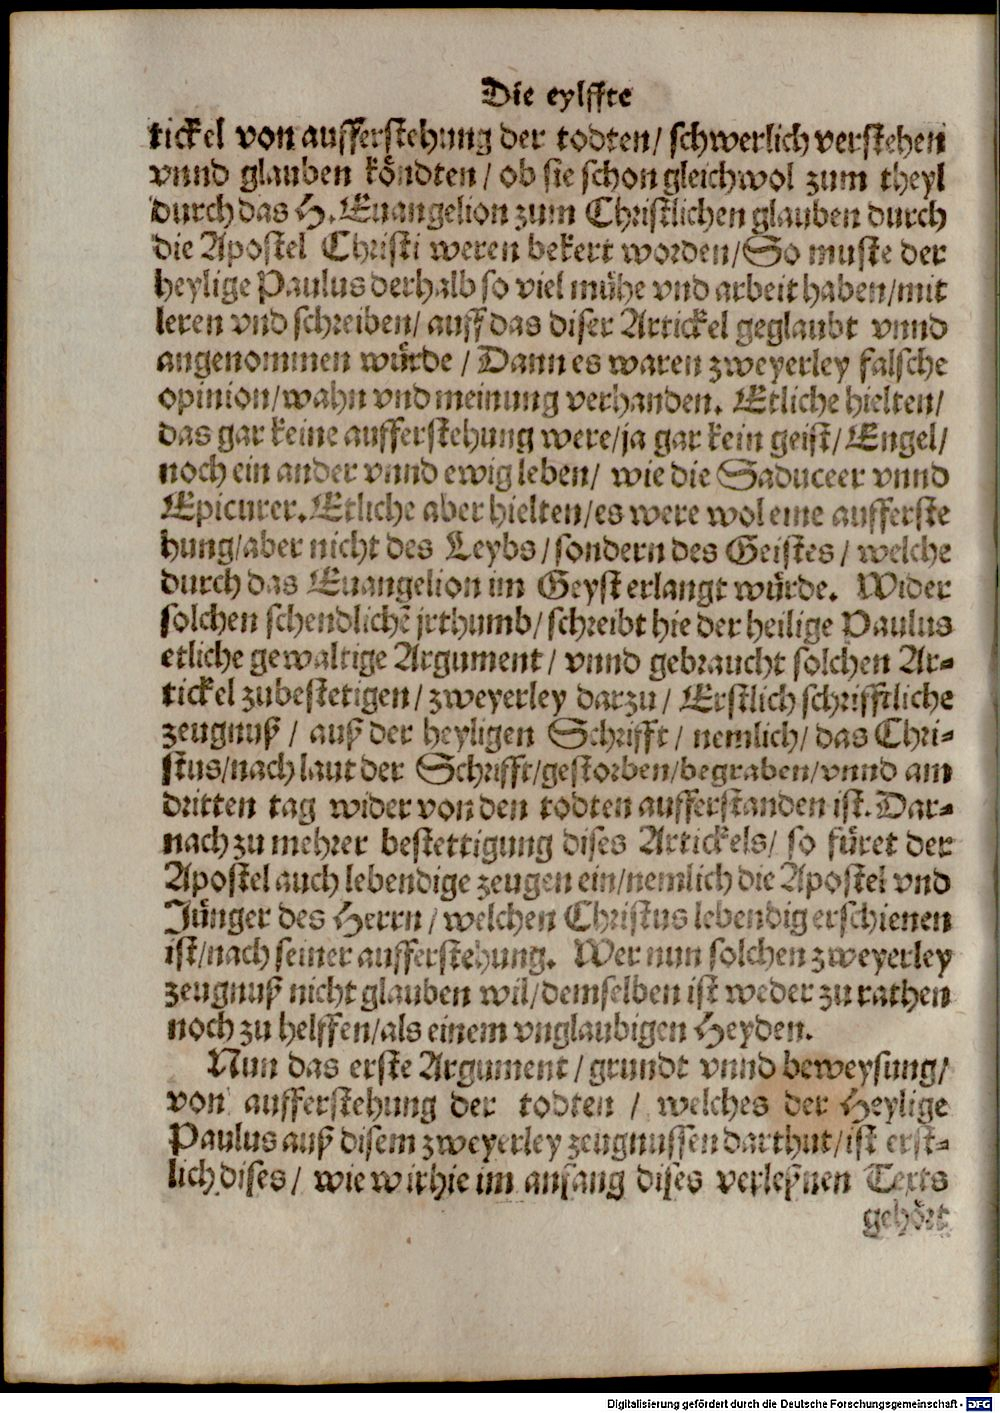 Die eylffte
tickel von aufferstehung der todten/ schwerlich verstehen
vnnd glauben köndten/ ob sie schon gleichwol zum theyl
durch das H. Euangelion zum Christlichen glauben durch
die Apostel Christi weren bekert worden/ So muste der
heylige Paulus derhalb so viel mühe vnd arbeit haben/ mit
leren vnd schreiben/ auff das diser Artickel geglaubt vnnd
angenommen würde / Dann es waren zweyerley falsche
opinion/ wahn vnd meinung verhanden. Etliche hielten/
das gar keine aufferstehung were/ ja gar kein geist/ Engel/
noch ein ander vnnd ewig leben/ wie die Saduceer vnnd
Epicurer. Etliche aber hielten/ es were wol eine aufferste
hung/ aber nicht des Leybs / sondern des Geistes / welche
durch das Euangelion im Geyst erlangt würde. Wider
solchen schendlichē jrthumb/ schreibt hie der heilige Paulus
etliche gewaltige Argument / vnnd gebraucht solchen Ar-
tickel zubestetigen / zweyerley darzu / Erstlich schrifftliche
zeugnuß / auß der heyligen Schrifft / nemlich/ das Chri-
stus/ nach laut der Schrifft/ gestorben/ begraben/ vnnd am
dritten tag wider von den todten aufferstanden ist. Dar-
nach zu mehrer bestettigung dises Artickels/ so füret der
Apostel auch lebendige zeugen ein/ nemlich die Apostel vnd
Jünger des Herrn / welchen Christus lebendig erschienen
ist/ nach seiner aufferstehung. Wer nun solchen zweyerley
zeugnuß nicht glauben wil/ demselben ist weder zu rathen
noch zu helffen/ als einem vnglaubigen Heyden.
Nun das erste Argument / grundt vnnd beweysung/
von aufferstehung der todten / welches der Heylige
Paulus auß disem zweyerley zeugnussen darthut/ ist erst-
lich dises / wie wir hie im anfang dises verleßnen Texts
gehört
Digitalisierung gefördert durch die Deutsche Forschungsgemeinschaft - DFG